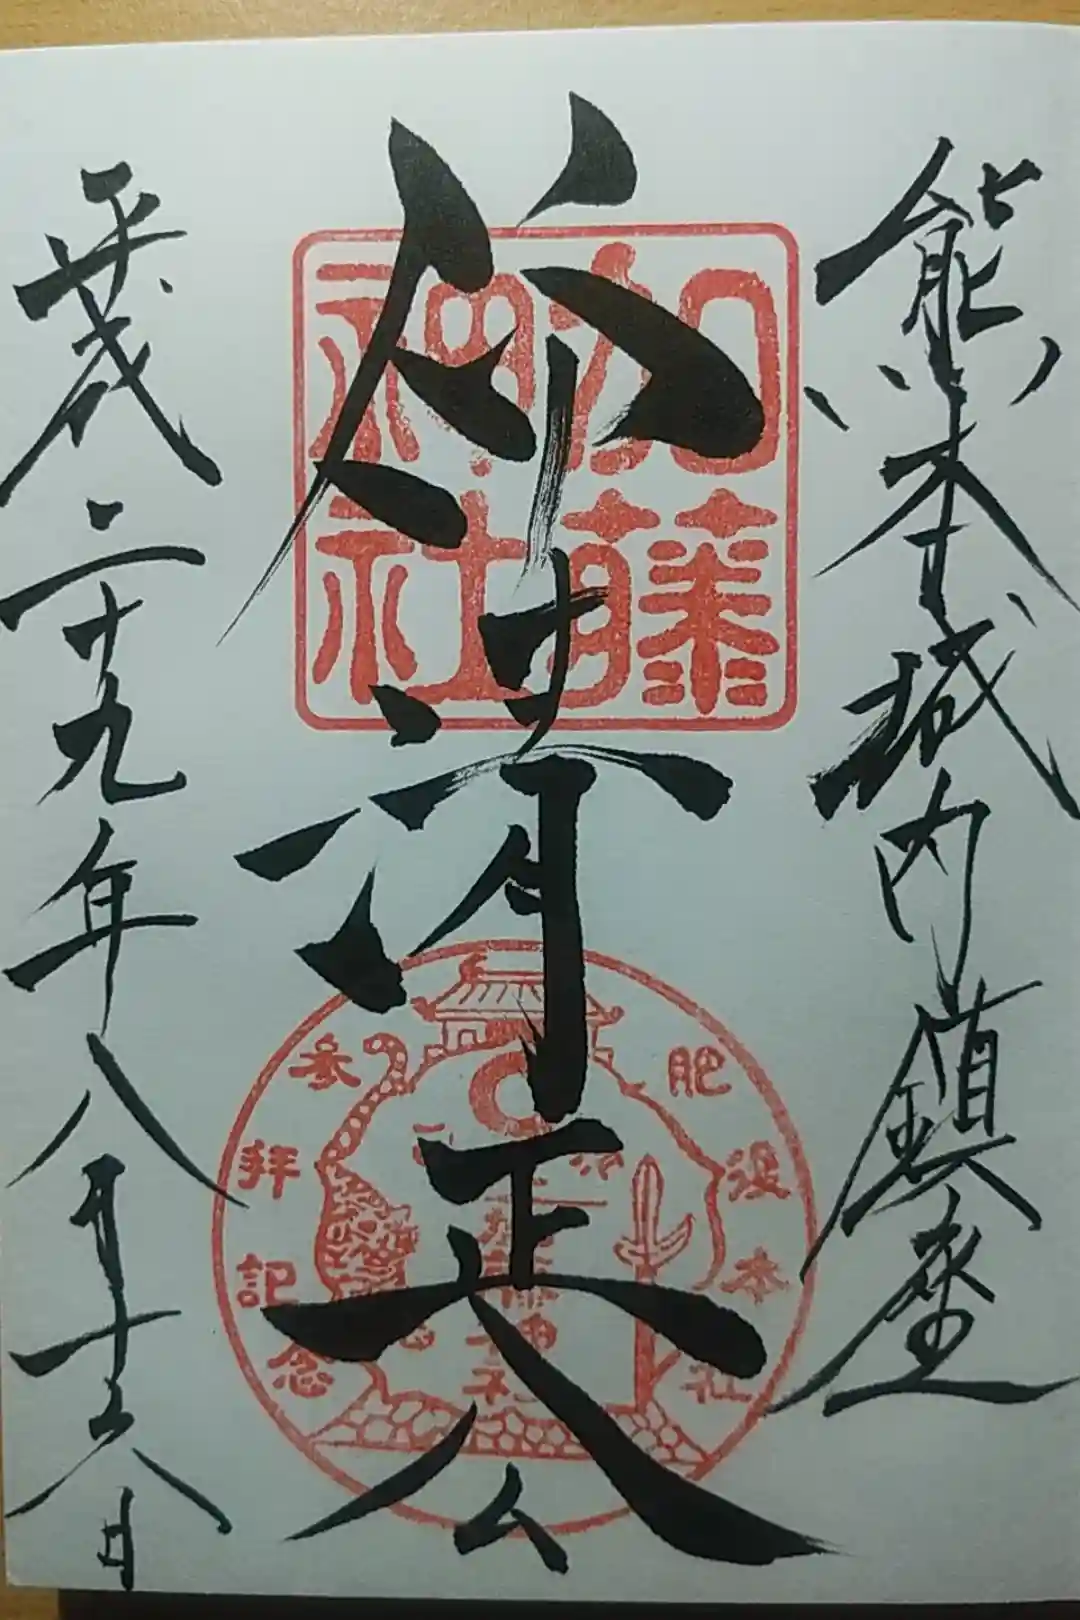 熊本城内鎮座
仰清正公
平成二十九年八月十六日
加藤
神社
肥後本社
参拝記念